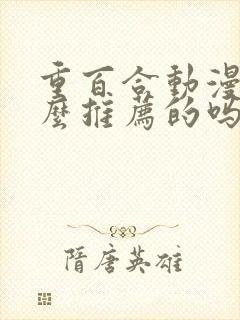 重百合動漫
麼推薦的嗎
隋唐英雄